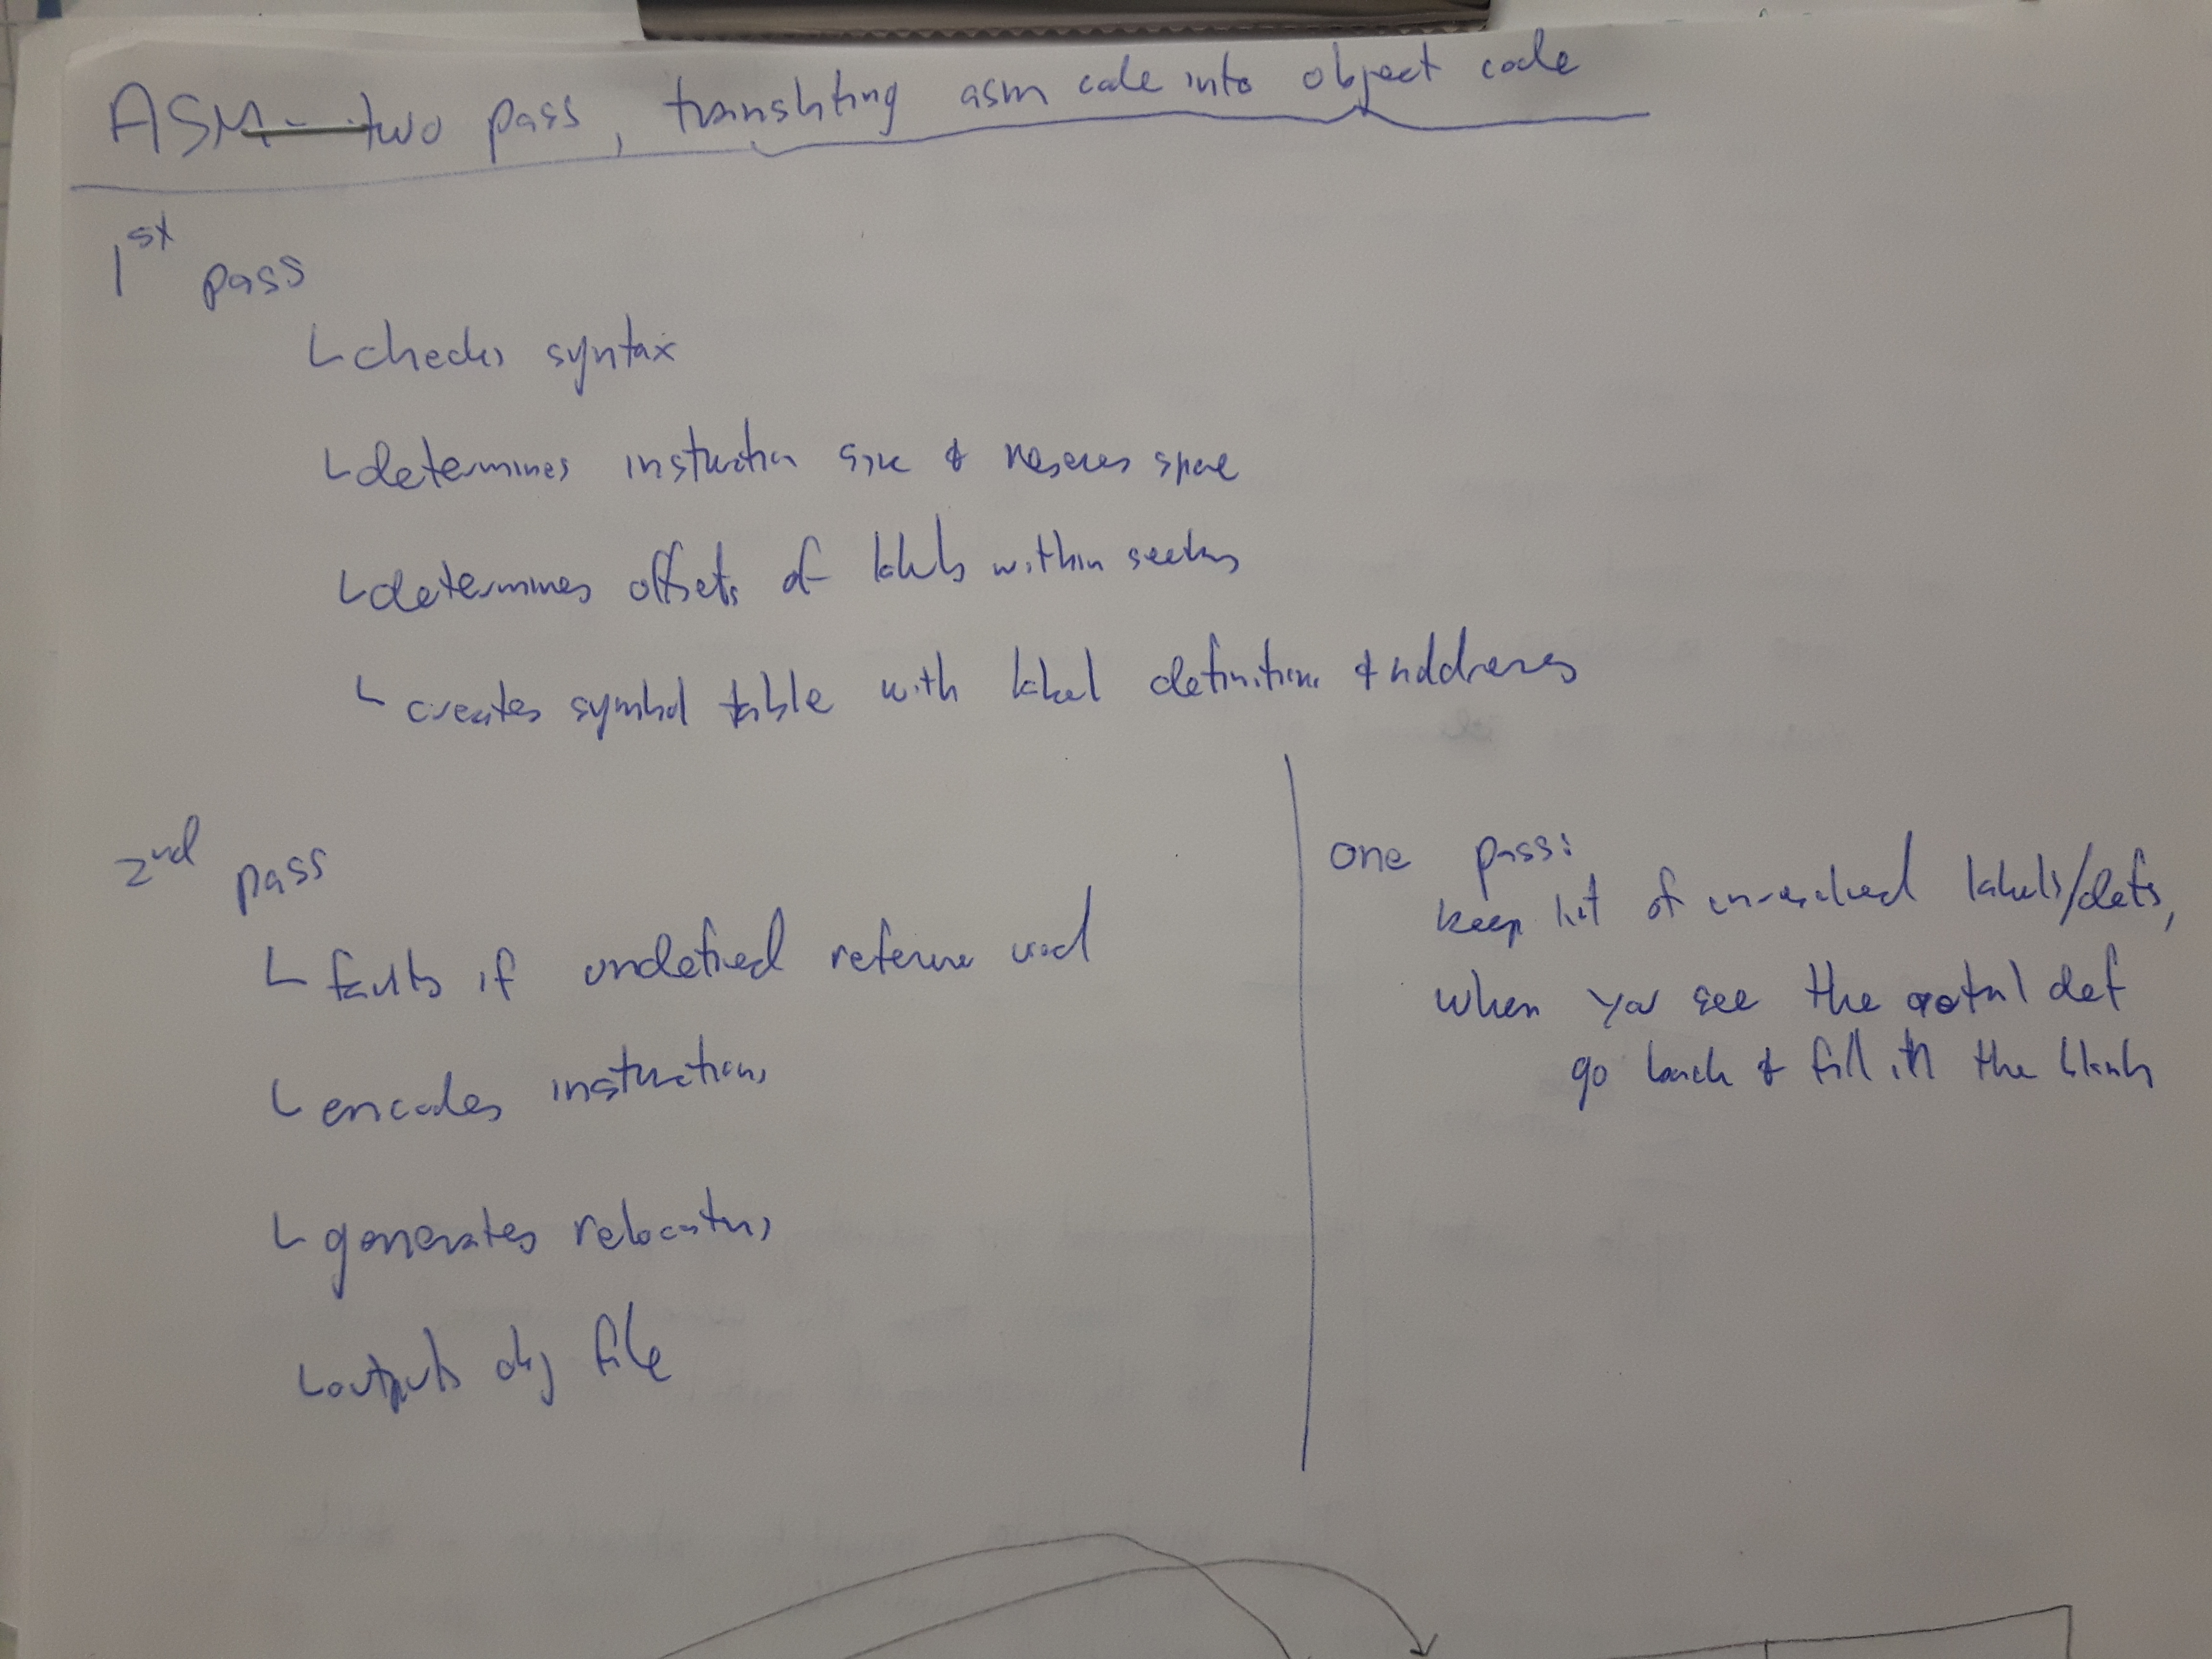 ASM - two pass, translating asm code into object code
1st pass
checks syntax
determines instruction size & reserves space
determines offsets of labels within sections
creates symbol table with label definitions & addresses
2nd pass
faults if undefined reference used
encodes instructions
generates relocations
outputs obj file
one pass:
keep list of unresolved labels/defs,
when you see the actual def
go back & fill in the blank